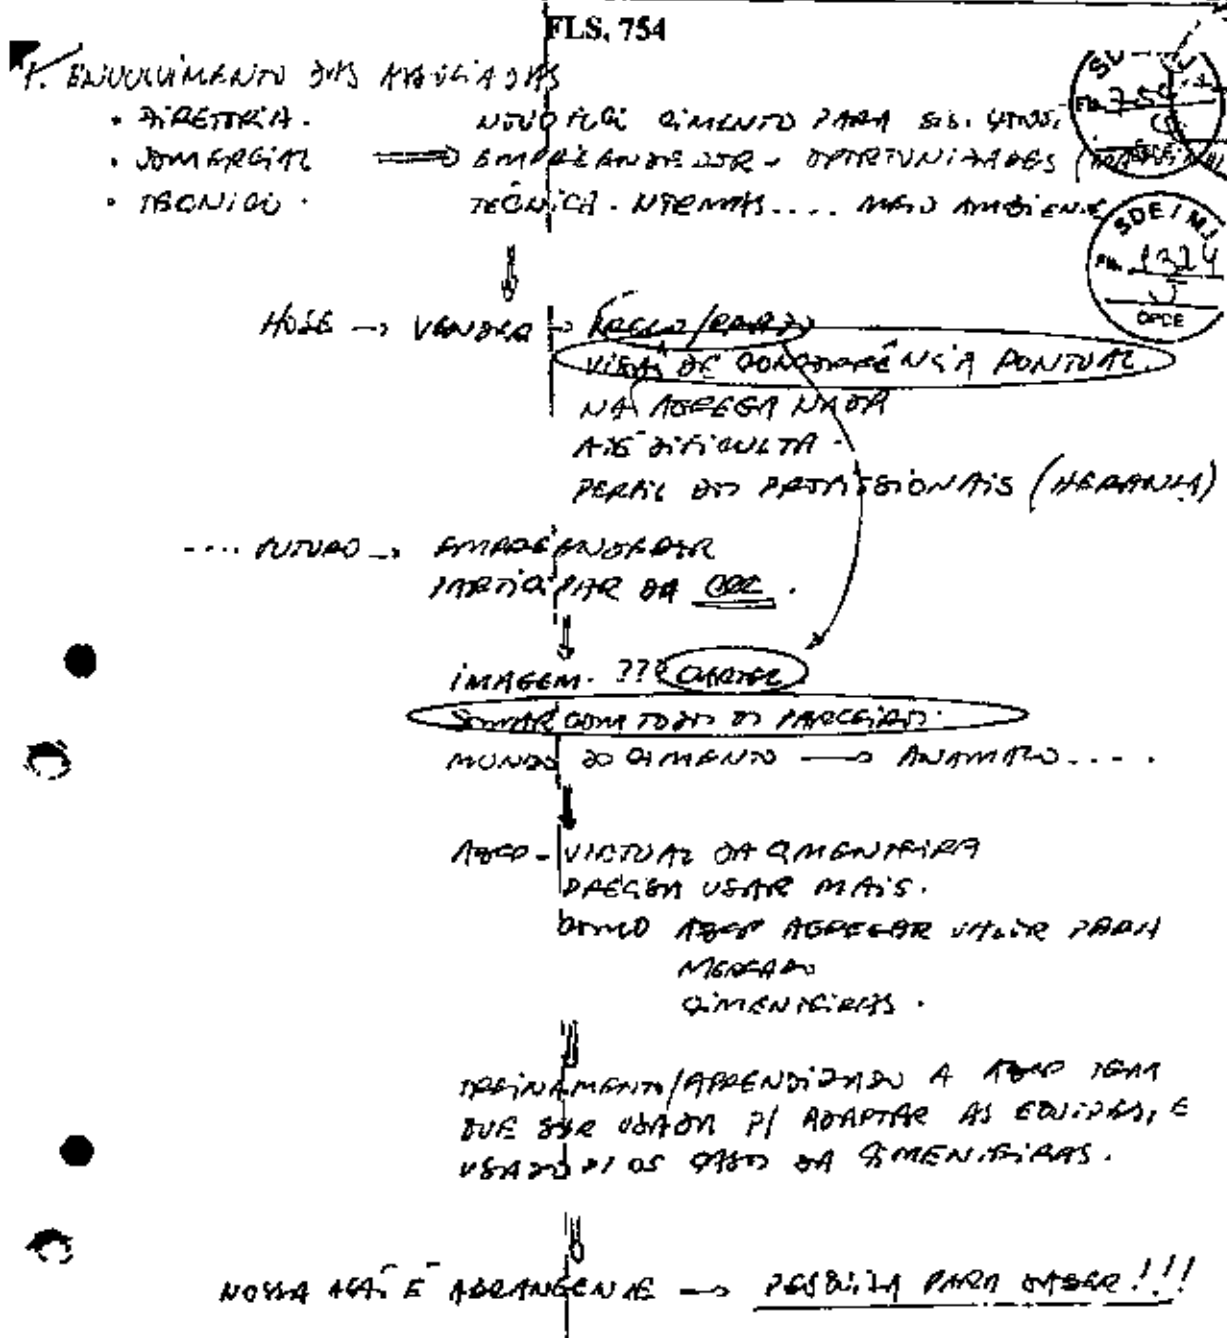 FLS. 754
1. ENVOLVIMENTO DAS ASSOCIADAS
• DIRETORIA.
NOVO CIMENTO PARA
• COMERCIAL ⟹ EMPREENDEDOR - OPORTUNIDADES
• TECNICO.
TÉCNICA. NORMAS.... MEIO AMBIENTE
Fls. 755
SDE / MJ
Fls. 1324
DPDE
HOJE → VENDER → PREÇO/PRAZO
VISÃO DE CONCORRÊNCIA PONTUAL.
NÃ AGREGA NADA
ATÉ DIFICULTA.
PERFIL DOS PROFISSIONAIS (HERANÇA)
.... FUTURO → EMPREENDEDOR
PARTICIPAR DA
IMAGEM. ??? CARTEL
SOMAR COM TODOS OS PARCEIROS.
MUNDO DO CIMENTO →
ABCP - VIRTUAL DA CIMENTEIRA
PRECISA USAR MAIS.
COMO ABCP AGREGAR VALOR PARA
MERCADO
CIMENTEIRAS.
TREINAMENTO/APRENDIZADO A ABCP TEM
QUE SER USADA P/ ADAPTAR AS EQUIPES, E
USADO P/ OS CASOS DA CIMENTEIRAS.
NOSSA AÇÃ É ABRANGENTE → PESQUIZA PARA SABER!!!